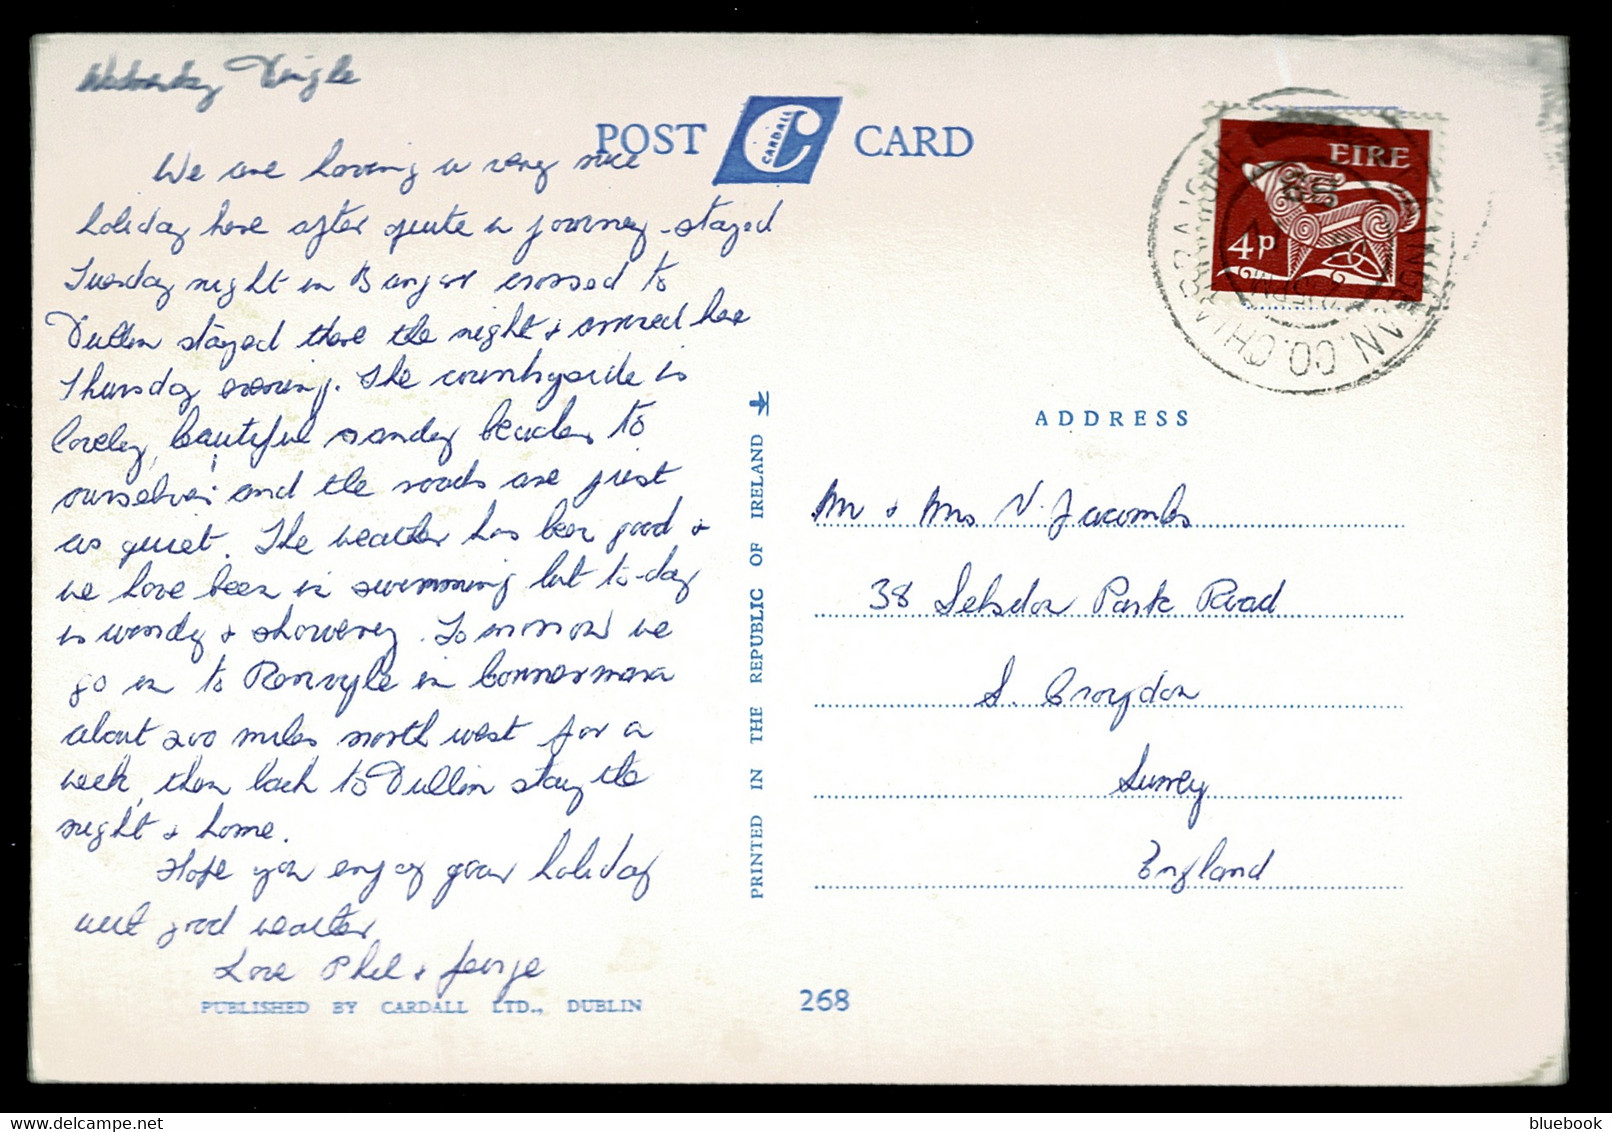 Wednesday Dingle
We are having a very nice
holiday here after quite a journey - stayed
Tuesday night in Bangor crossed to
Dublin stayed there the night & arrived here
Thursday evening. The countryside is
lovely, beautiful sandy beaches to
ourselves and the roads are just
as quiet. The weather has been good &
we have been in swimming but to-day
is windy & showery. Tomorrow we
go on to Renvyle in Connermara
about 200 miles north west for a
week, then back to Dublin stay the
night & home.
Hope you enjoy your holiday
with good weather
Love Phil & George
PUBLISHED BY CARDALL LTD., DUBLIN
268
POST CARD
CARDALL
PRINTED IN THE REPUBLIC OF IRELAND
EIRE
4p
AN.CO.CHIARRAI
ADDRESS
Mr & Mrs V. Jacombs
38 Selsdon Park Road
S. Croydon
Surrey
England
bluebook